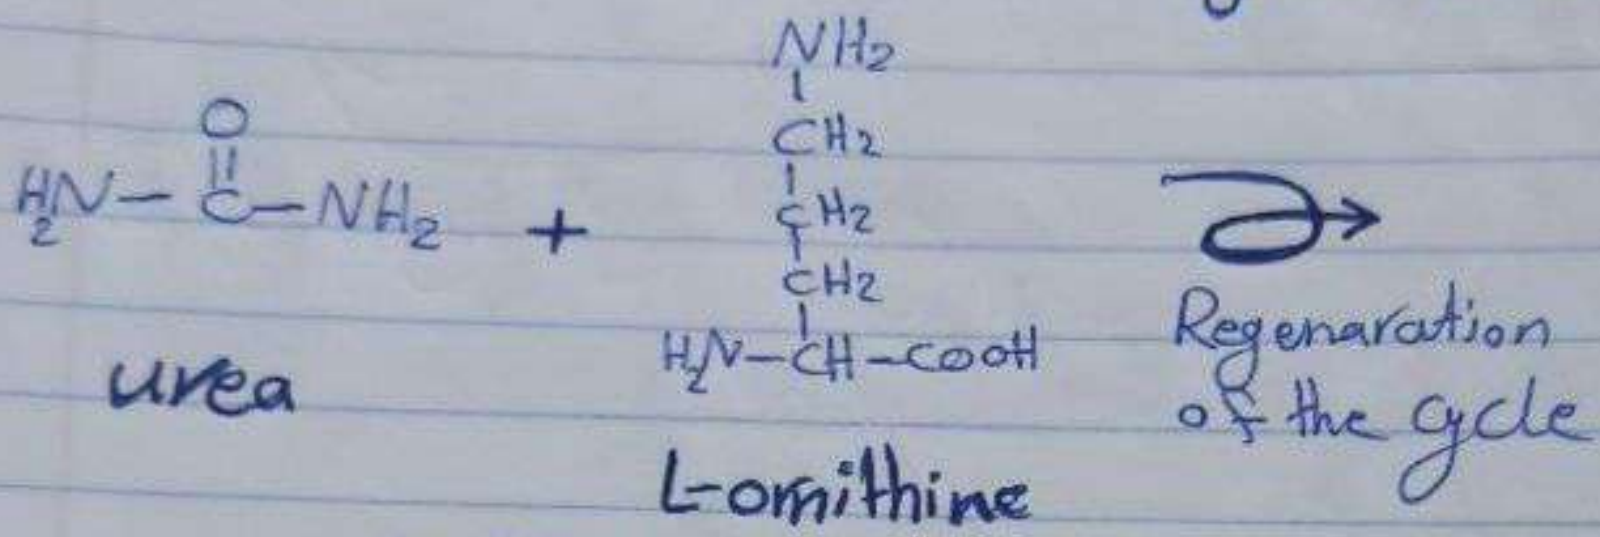 NH2
CH2
O
H2N-C-NH2
+
CH2
CH2
H2N-CH-COOH
urea
L-ornithine
Regenaration
of the cycle